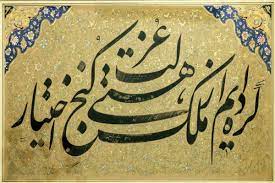 کرده ایم از ملک هستی کنج عزلت اختیار